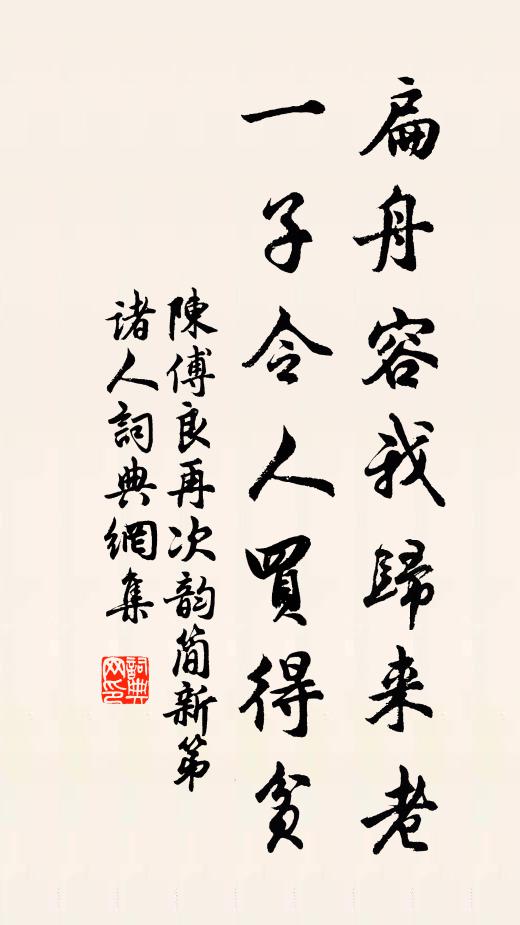 扁舟容我歸来老
一子令人買得貧
陳傅良再次韵简新第
诸人詞典網集
詞典网印